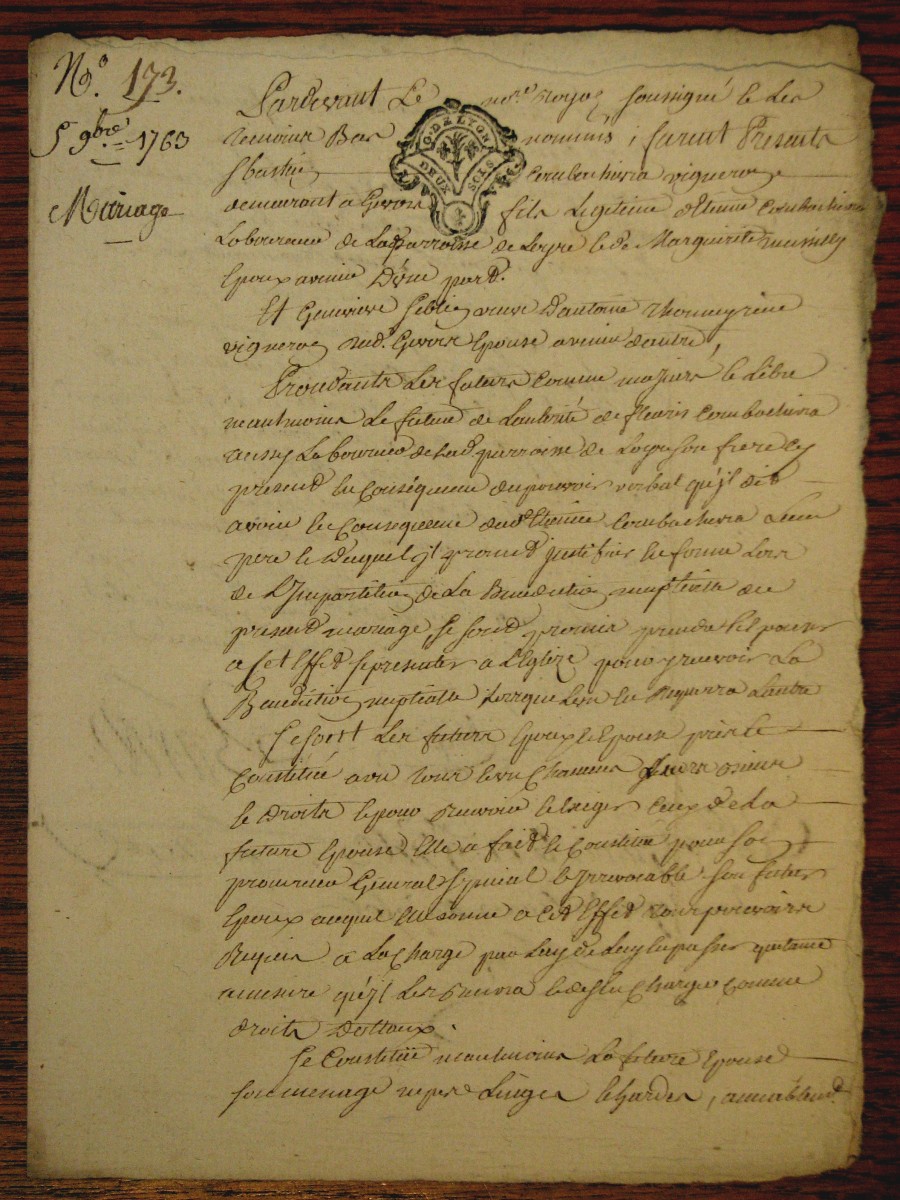 N.º 173.
5 9bre 1763
Mariage
Pardevant Le no.re royal soussigné et Les
temoins Bas nommés, furent Presents
G. DE LYON
DEUX SOLS
Sbastien Combachivra vigneron
demeurant a Givors fils Legitime d'Etienne Combachivra
Laboureur de La parroisse de Loyre et de Marguerite
Epoux avenir D'une part.
Et Genevieve veuve d'antoine Thomeyrieu
vigneron aud. Givors Epouse avenir d'autre,
Procedants Les futurs comme majeurs et Libre
neantmoins Le futur de L'authorité de fleuris Combachivra
aussy Laboureur de lad. parroisse de Loyre son frere Cy
present En Conséquence du pouvoir verbal qu'il dit
avoir En Consequence dud. Etienne Combachivra leur
pere et Duquel il promet justifier En forme Lors
de L'Impartition de La Benediction nuptiale du
present mariage, se sont promis prendre et pour
a Cet Effet se presenter a L'Eglize pour y recevoir La
Benediction nuptialle Lorsque L'un En Requerra L'autre
Se sont Les futurs Epoux et Epouse pris et
Constitué avec tous leurs Chacuns
et Droits et pour Recevoir et Exiger Ceux de La
future Epouse Elle a fait et Constitué pour son
procureur General Special et Irrevocable son futur
Epoux auquel Elle donne a Cet Effet tour pouvoirs
Requis a La Charge par Luy de Luy En passer quitance
a mesure qu'il Les Recevra et des En Charger Comme
droits Dottaux.
Se Constitue neantmoins La future Epouse
son menage Linges et hardes, ameublemt.